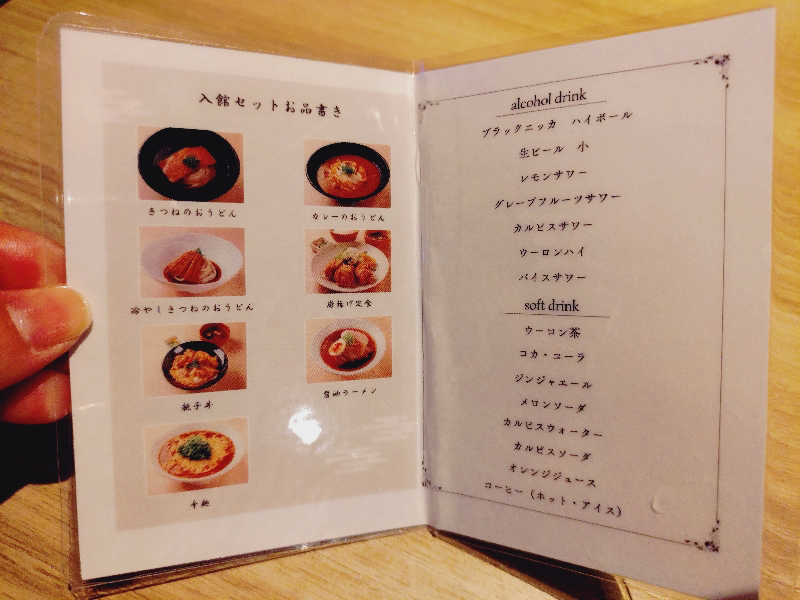 入館セットお品書き
きつねのおうどん
カレーのおうどん
冷やしきつねのおうどん
唐揚げ定食
親子丼
醤油ラーメン
辛麺
alcohol drink
ブラックニッカ ハイボール
生ビール 小
レモンサワー
グレープフルーツサワー
カルピスサワー
ウーロンハイ
バイスサワー
soft drink
ウーロン茶
コカ・コーラ
ジンジャエール
メロンソーダ
カルピスウォーター
カルピスソーダ
オレンジジュース
コーヒー（ホット・アイス）